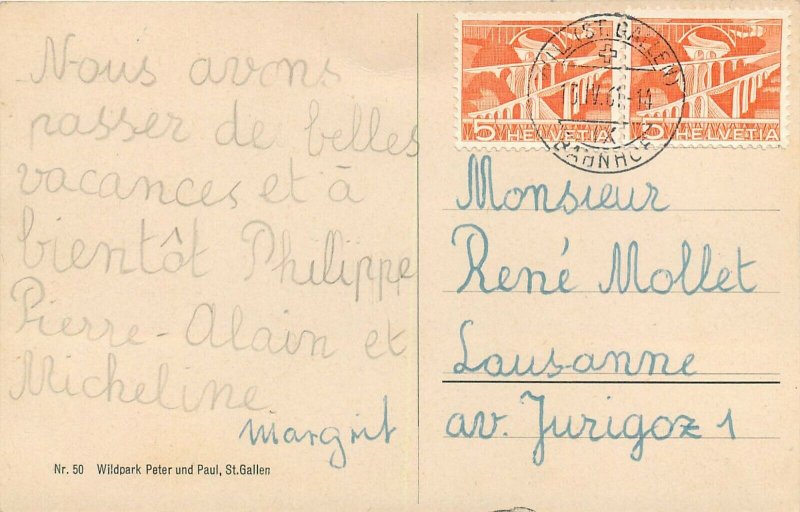 Nous avons
passer de belles
vacances et à
bientôt Philippe
Pierre-Alain et
Micheline
Margrit
Nr. 50 Wildpark Peter und Paul, St.Gallen
5 HELVETIA
5 HELVETIA
WIL (ST. GALLEN)
BAHNHOF
Monsieur
René Mollet
Lausanne
av. Jurigoz 1